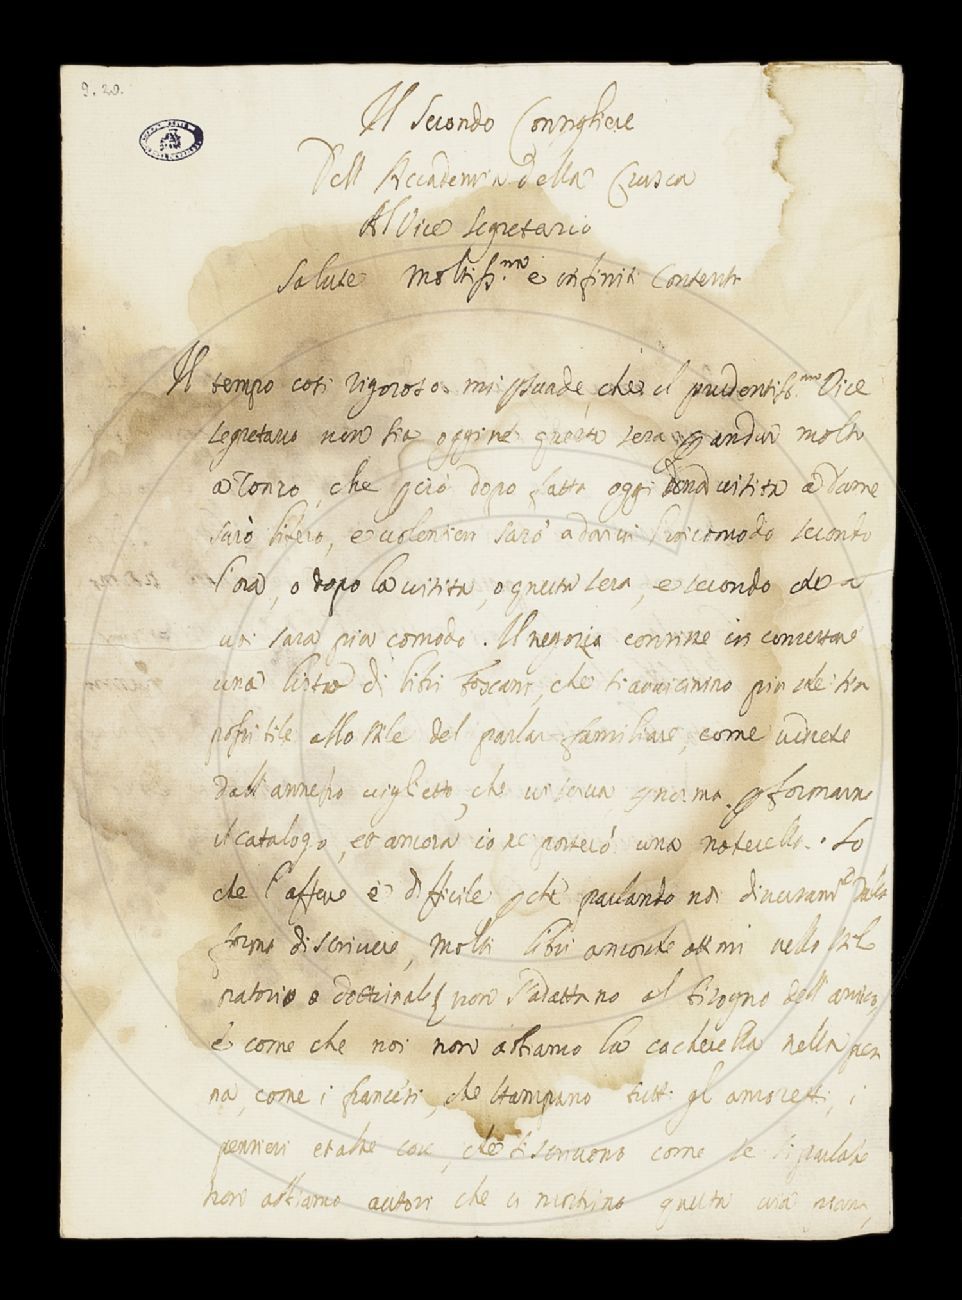 9. 20.
Il Secondo Consigliere
Dell Accademia della Crusca
Al Vice Segretario
Salute Moltiss.ma e infiniti Contenti
Il tempo così rigoroso mi psuade, che il prudentiss.mo Vice
segretario non sia oggi ne questa sera p andar molto
a Zonzo, che pciò dopo fatta oggi una visita a Dame
sarò libero, e volentieri sarò a darvi l'incomodo secondo
l'ora, o dopo la visita, o questa sera, e secondo che a
voi sarà più comodo. Il negozio consiste in concertare
una lista di libri Toscani, che si avvicinino più che sia
possibile allo stile del parlar familiare, come vedrete
dall'annesso viglietto, che vi serva p norma p formarne
il catalogo, et ancora io ne porterò una noterella. So
che l'affare è difficile pchè parlando noi diversam.te dalla
forma di scrivere, molti libri ancorche ottimi nello stile
oratorio o dottrinale non s'adattano al bisogno dell'amico,
e come che noi non abbiamo la cacherella nella pen
na, come i franzesi, che stampano tutti gl amoretti, i
pensieri et altre cose, che si scrivono come se si parlasse
non abbiamo autori che ci mostrino questa via piana,